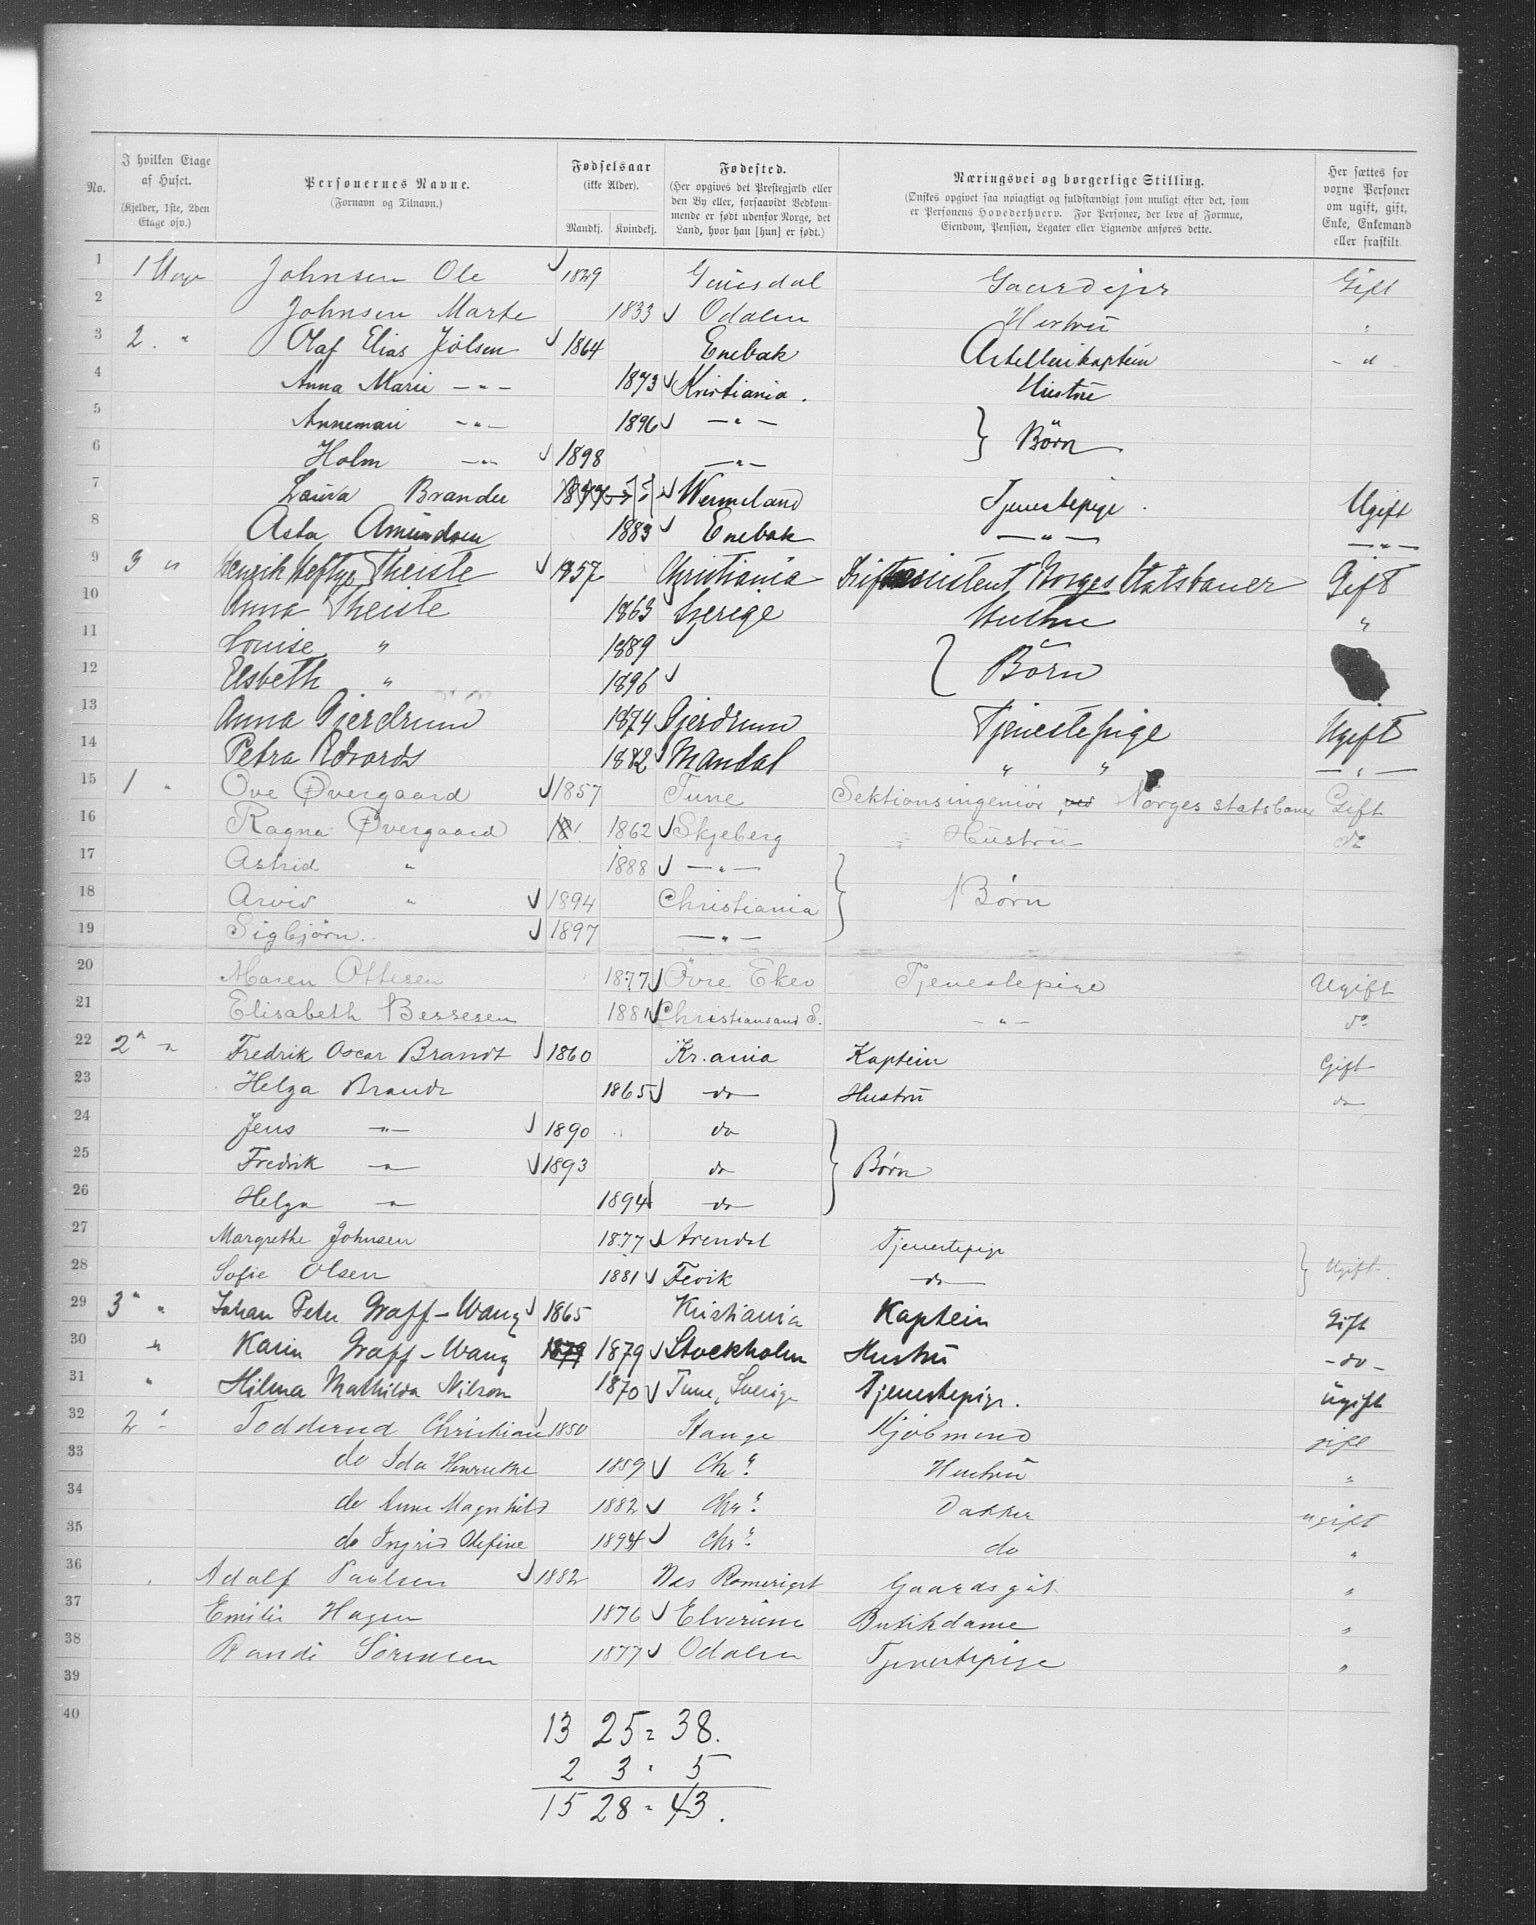 No. | I hvilken Etage af Huset. (Kjelder, 1ste, 2den Etage osv.) | Personernes Navne. (Fornavn og Tilnavn.) | Fødselsaar (ikke Alder). Mandkj. Kvindekj. | Fødested. (Her opgives det Prestegjæld eller den By eller, forsaavidt Vedkommende er født udenfor Norge, det Land, hvor han [hun] er født.) | Næringsvei og borgerlige Stilling. (Ønskes opgivet saa nøiagtigt og fuldstændigt som muligt efter det, som er Personens Hovederhverv. For Personer, der leve af Formue, Eiendom, Pension, Legater eller Lignende anføres dette. | Her sættes for voxne Personer om ugift, gift, Enke, Enkemand eller fraskilt.
1 1 Johnsen Ole 1829 Gausdal Gaardejer Gift
2 Johnsen Marte 1833 Odalen Hustru "
3 2. " Olaf Elias Jølsen 1864 Enebak Artellerikaptein
4 Anna Marie -"- 1873 Kristiania. Hustru
5 Annemari -"- 1896 -"- } Børn
6 Holm -"- 1898 -"-
7 Laura Brander Wermeland Tjenestepige. Ugift
8 Asta Amundsen 1883 Enebak -"- -"-
9 3 " Henrik Heftye Theiste 1857 Christiania Driftsassistent, Norges Statsbaner Gift
10 Anna Theiste 1863 Sverige Hustru "
11 Louise " 1889 { Børn
12 Elsbeth " 1896
13 Anna Gjerdrum 1874 Gjerdrum Tjenestepige Ugift
14 Petra Edvards 1882 Mandal " " -"-
15 1 " Ove Øvergaard 1857 Tune Sektionsingeniør, ved Norges statsbaner Gift
16 Ragna Øvergaard 18 1862 Skjeberg Hustru do
17 Astrid " 1888 -"-
18 Arvid " 1894 Christiania } Børn
19 Sigbjørn. 1897 -"-
20 Maren Ottesen 1877 Øvre Eker Tjenestepige Ugift
21 Elisabeth Bessesen 1881 Christiansand S. -"- do
22 2 " Fredrik Oscar Brandt 1860 Kr.ania Kaptein Gift
23 Helga Brandt 1865 do Hustru do
24 Jens -"- 1890 do
25 Fredrik -"- 1893 do } Børn
26 Helga -"- 1894 do
27 Margrethe Johnsen 1877 Arendal Tjenestepige
28 Sofie Olsen 1881 Fevik do } Ugift.
29 3 " Johan Peter Graff-Wang 1865 Kristiania Kaptein Gift
30 " Karin Graff-Wang 1879 1879 Stockholm Hustru -do-
31 " Hilma Mathilda Nilson 1870 Tune, Sverige Tjenestepige. Ugift
32 2 Todderud Christian 1850 Stange Kjøbmand gift
33 do Ida Henrikke 1859 Chra. Hustru "
34 do Anne Magnhild 1882 Chra. Datter ugift
35 do Ingrid Olefine 1894 Chra. do "
36 Adolf Paulsen 1882 Nes Romeriget Gaardsgut "
37 Emilie Hagen 1876 Elverum Butikdame "
38 Randi Sørensen 1877 Odalen Tjenestepige "
39
40
13 25 = 38.
2 3 = 5
15 28 = 43.